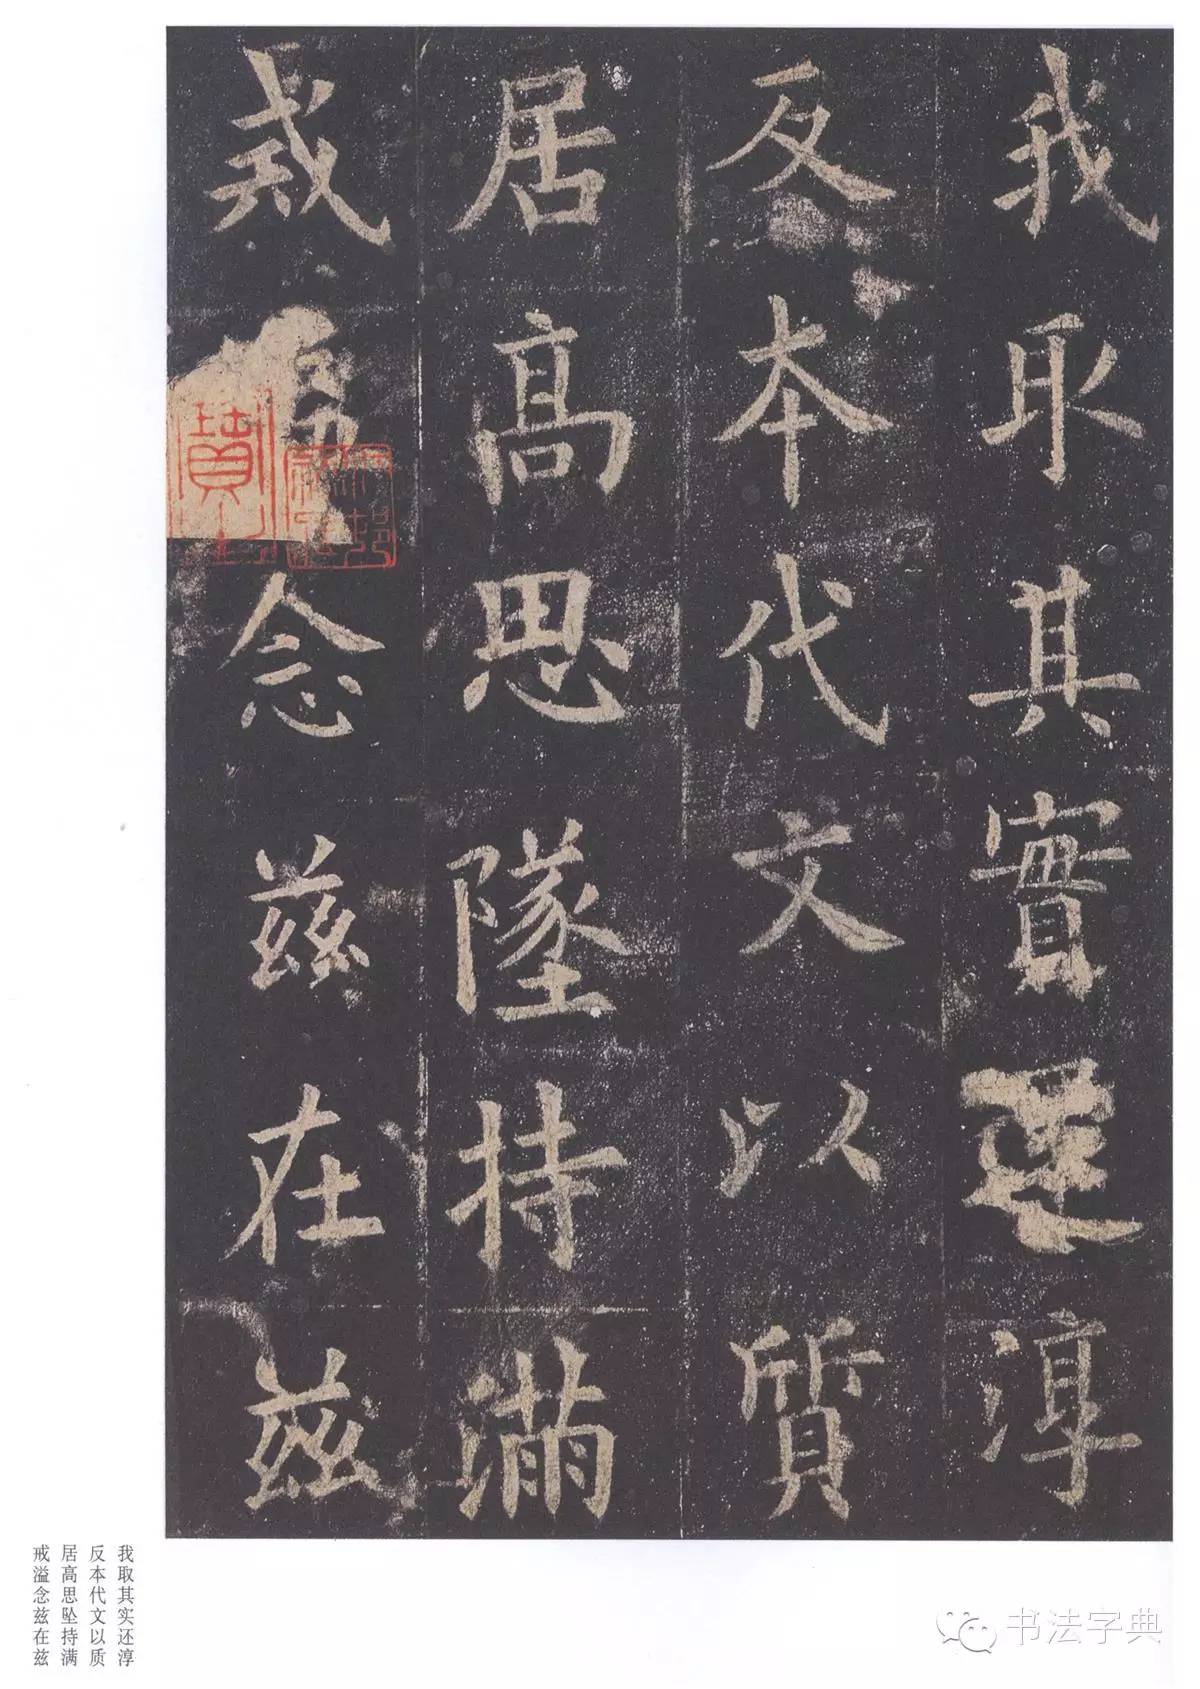 我取其實還淳
反本代文以質
居高思墜持滿
戒念兹在兹
我取其实还淳
反本代文以质
居高思坠持满
戒溢念兹在兹
书法字典